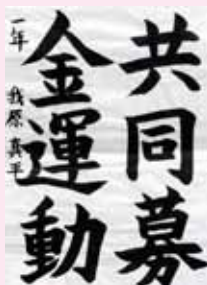 共同募
金運動
一年 我原真平